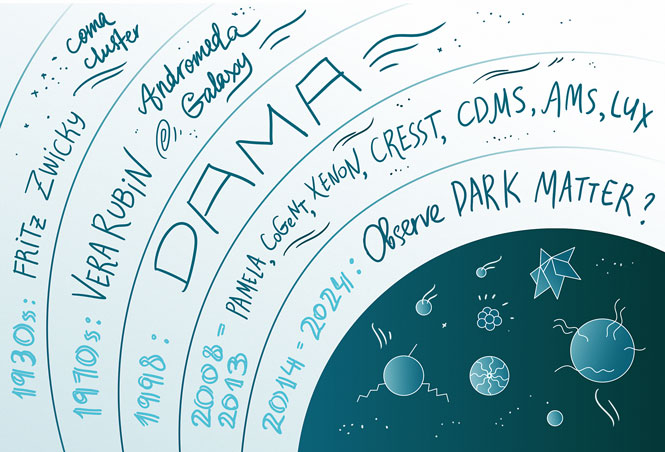 1930s: FRITZ ZWICKY coma
cluster
1970s: VERA RUBIN Andromeda
Galaxy
1998: DAMA
2008 = PAMELA, CoGeNT, XENON, CRESST, CDMS, AMS, LUX
2013
2014 = 2024: Observe DARK MATTER?